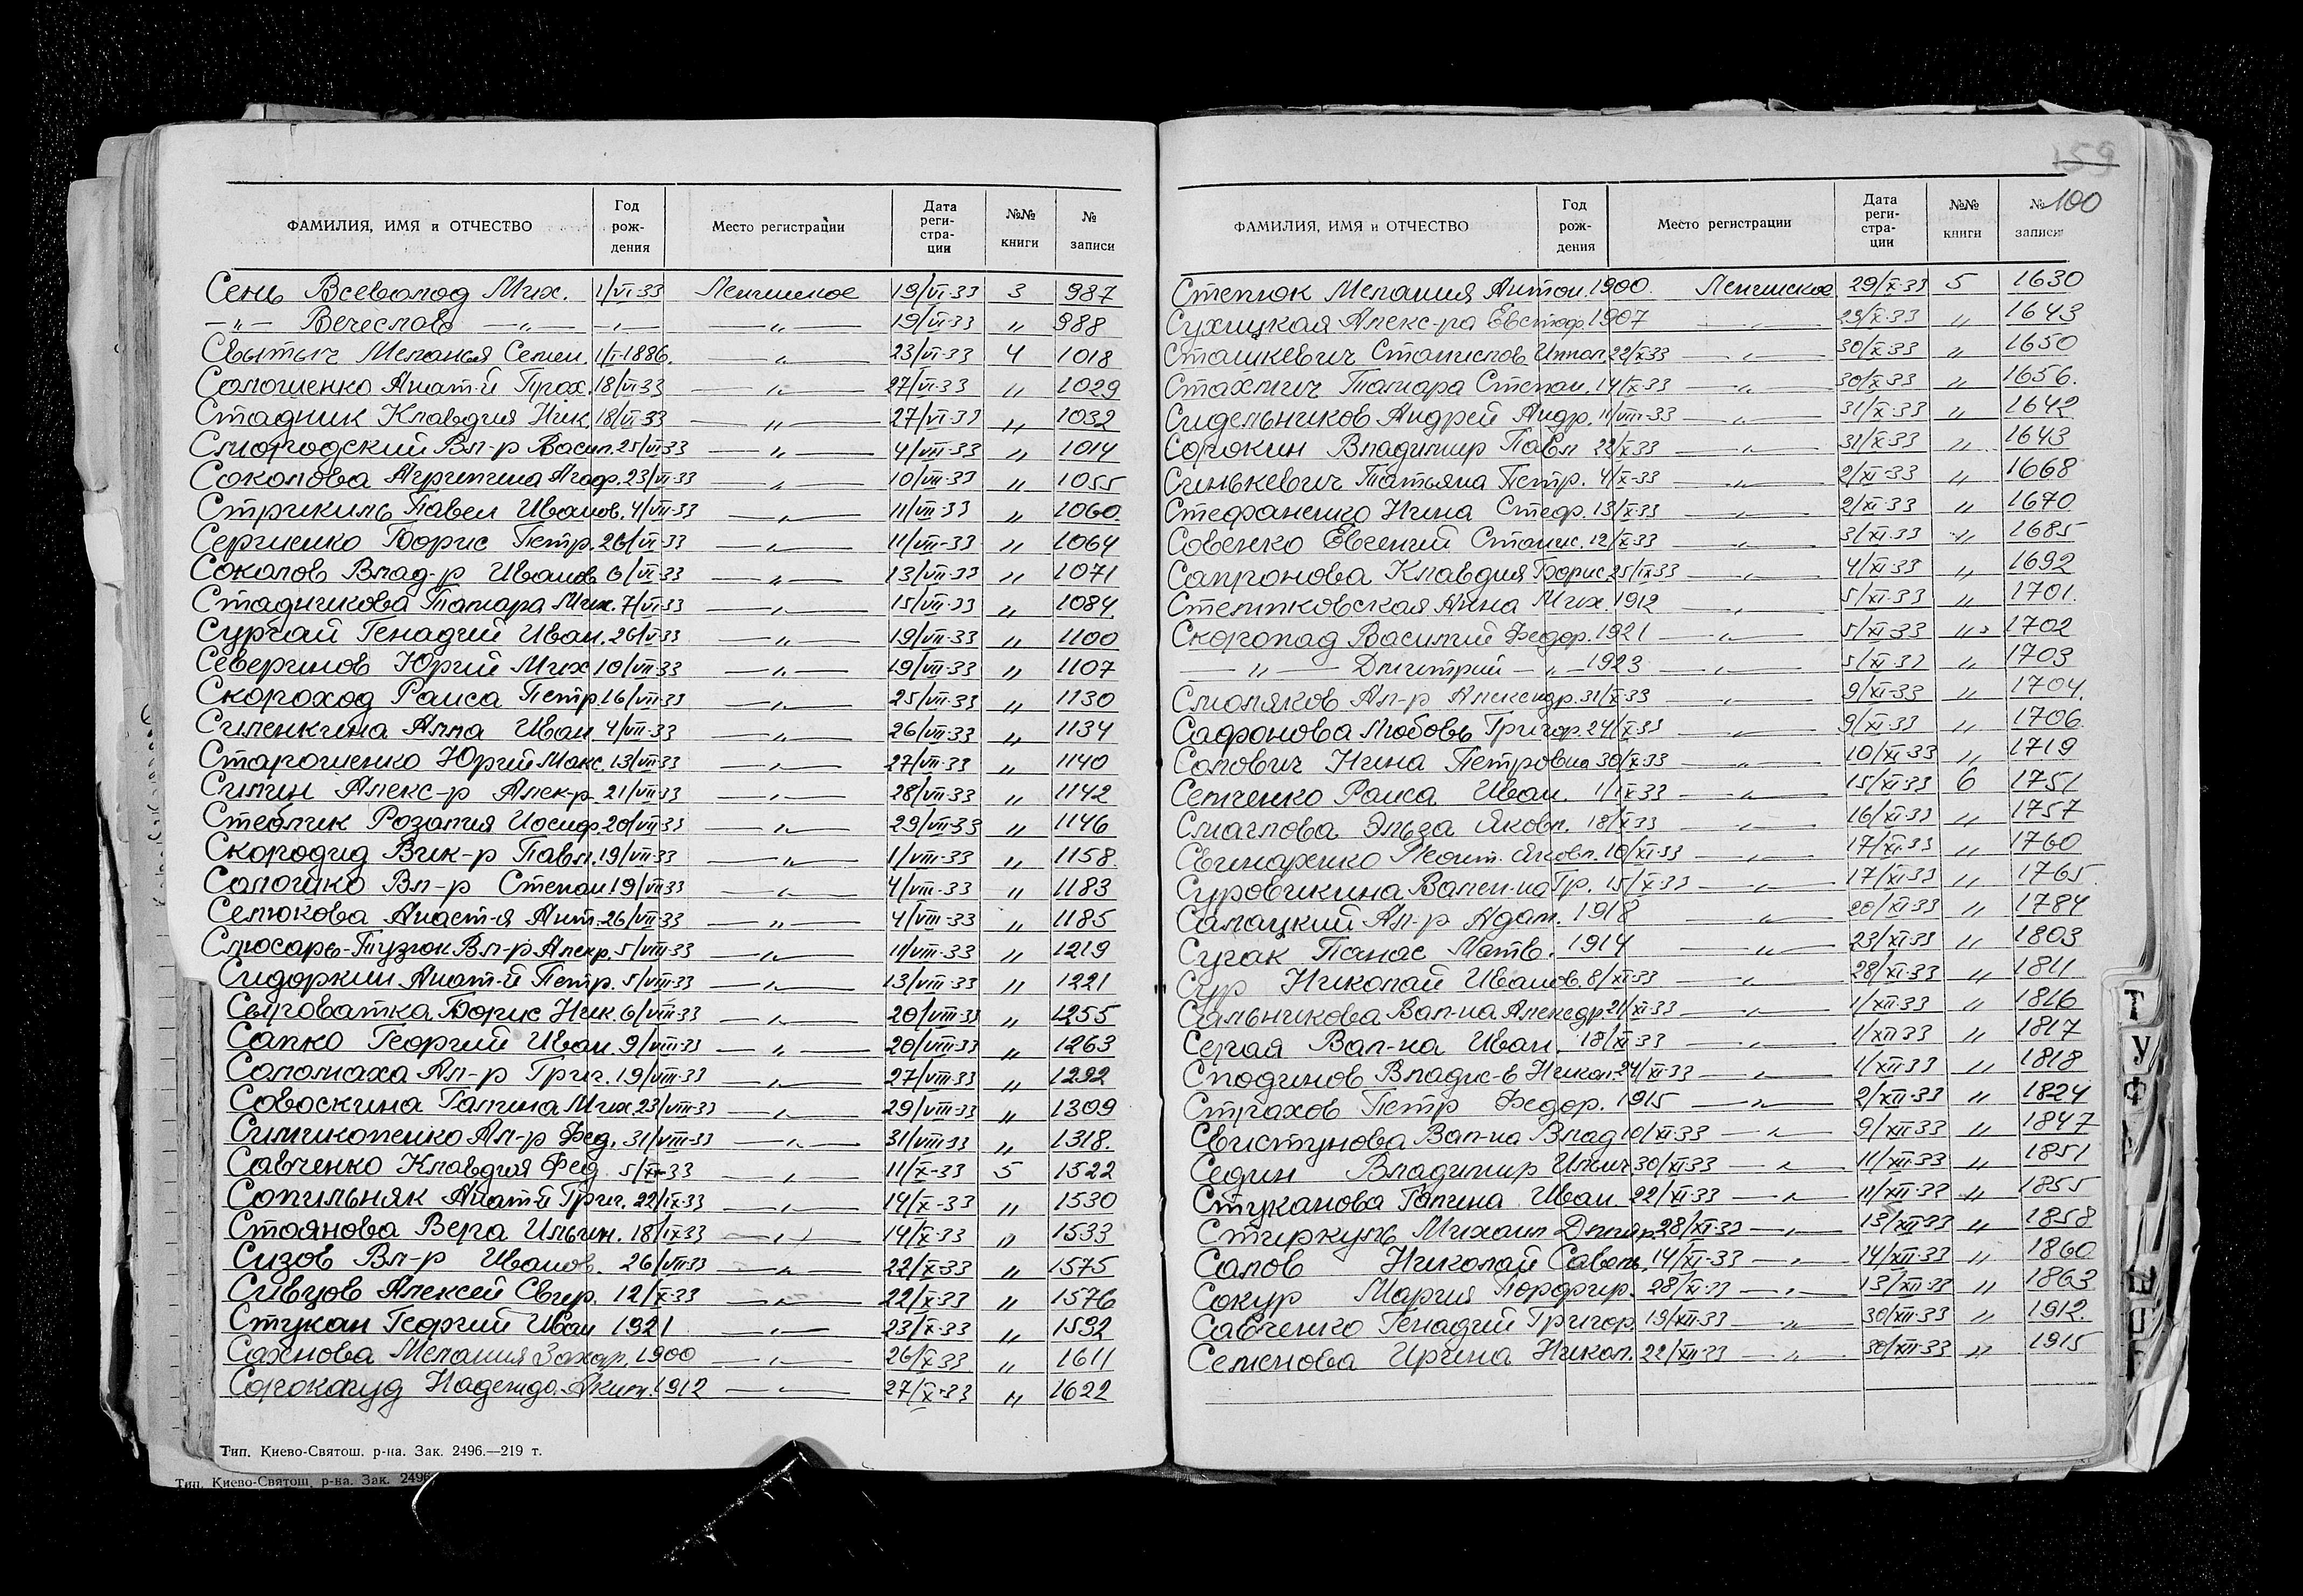 159
100
ФАМИЛИЯ, ИМЯ и ОТЧЕСТВО Год рож- дения Место регистрации Дата реги- стра- ции №№ книги № записи
Сень Всеволод Мих. 1/VI 33 Ленинское 19/VI-33 3 987
—"— Вечеслов —"— —"— —"— 19/VI-33 " 988
Свытыч Меланья Семен. 1/I-1886. —"— 23/VI-33 4 1018
Солошенко Анат-й Прох. 18/VI 33 —"— 27/VI-33 " 1029
Стадник Клавдия Ник. 18/VI-33 —"— 27/VI-33 " 1032
Смогродский Вл-р Васил. 25/VI 33 —"— 4/VII-33 " 1014
Соколова Агрипина Агаф. 23/VI-33 —"— 10/VII-33 " 1055
Стрикиль Павел Иванов. 4/VII-33 —"— 11/VII-33 " 1060.
Сергиенко Борис Петр. 26/VI-33 —"— 11/VII-33 " 1064
Соколов Влад-р Иванов 6/VI-33 —"— 13/VII-33 " 1071
Стадникова Тамара Мих. 7/VI-33 —"— 15/VII-33 " 1084.
Сургай Генадий Иван. 26/V-33 —"— 19/VII-33 " 1100
Северинов Юрий Мих 10/VII-33 —"— 19/VII-33 " 1107
Скороход Раиса Петр. 16/VII-33 —"— 25/VII-33 " 1130
Силенкина Алла Иван 4/VII-33 —"— 26/VII-33 " 1134
Старошенко Юрий Макс. 13/VII-33 —"— 27/VII-33 " 1140
Симин Алекс-р Алек-р. 21/VII-33 —"— 28/VII-33 " 1142
Стеблик Розалия Иосиф. 20/VII-33 —"— 29/VII-33 " 1146
Скородид Вик-р Павл. 19/VII-33 —"— 1/VIII-33 " 1158.
Солошко Вл-р Степан 19/VII-33 —"— 4/VIII-33 " 1183
Семокова Анаст-я Ант. 26/VII-33 —"— 4/VIII-33 " 1185
Слюсарь-Тузюк Вл-р Алекр. 5/VIII-33 —"— 11/VIII-33 " 1219
Сидоркин Анат-й Петр. 5/VIII-33 —"— 13/VIII-33 " 1221
Сыроватка Борис Ник. 6/VIII-33 —"— 20/VIII-33 " 1255
Сапко Георгий Иван. 9/VIII-33 —"— 20/VIII-33 " 1263
Соломаха Ал-р Григ. 19/VIII-33 —"— 27/VIII-33 " 1292
Совоскина Галина Мих. 23/VIII-33 —"— 29/VIII-33 " 1309
Симикопенко Ал-р Фед. 31/VIII-33 —"— 31/VIII-33 " 1318.
Савченко Клавдия Фед. 5/IX-33 —"— 11/X-33 5 1522
Сопильняк Анат-й Григ. 22/IX-33 —"— 14/X-33 " 1530
Стоянова Вера Ильин. 18/IX-33 —"— 14/X-33 " 1533
Сизов Вл-р Иванов. 26/VII-33 —"— 22/X-33 " 1575
Сивцов Алексей Свир. 12/X-33 —"— 22/X-33 " 1576
Стукан Георгий Иван 1921 —"— 23/X-33 " 1592
Сахнова Мелания Захар. 1900 —"— 26/X-33 " 1611
Сорокауд Надежда Аким. 1912 —"— 27/X-33 " 1622
Тип. Киево-Святош. р-на. Зак. 2496.—219 т.
Тип. Киево-Святош. р-на. Зак. 2496
ФАМИЛИЯ, ИМЯ и ОТЧЕСТВО Год рож- дения Место регистрации Дата реги- стра- ции №№ книги № записи
Степюк Мелания Антон. 1900. Ленинское 29/X-33 5 1630
Сухицкая Алекс-ра Евстаф. 1907 —"— 29/X-33 " 1643
Сташкевич Станислов Иппол. 22/X 33 —"— 30/X-33 " 1650
Стахлич Тамара Степан. 14/X-33 —"— 30/X-33 " 1656.
Сидельников Андрей Андр. 11/VIII-33 —"— 31/X-33 " 1642
Сорокин Владимир Павл 22/X-33 —"— 31/X-33 " 1643
Синькевич Татьяна Петр. 4/X-33 —"— 2/XI-33 " 1668
Стефаненко Нина Стеф. 13/X-33 —"— 2/XI-33 " 1670
Совенко Евгений Станис. 12/X-33 —"— 3/XI-33 " 1685
Сапронова Клавдия Борис. 25/IX-33 —"— 4/XI-33 " 1692
Стемпковская Анна Мих. 1912 —"— 5/XI-33 " 1701.
Скоропад Василий Федор. 1921 —"— 5/XI-33 " 1702
—"— Дмитрий —"— 1923 —"— 5/XI-33 " 1703
Смоляков Ал-р Александр. 31/X-33 —"— 9/XI-33 " 1704.
Сафонова Любовь Григор. 24/X-33 —"— 9/XI-33 " 1706.
Солович Нина Петровна 30/X-33 —"— 10/XI-33 " 1719
Семченко Раиса Иван. 1/IX-33 —"— 15/XI-33 6 1751
Смаглова Эльза Яковл. 18/X-33 —"— 16/XI-33 " 1757
Свинаренко Леонт. Яковл. 10/XI-33 —"— 17/XI-33 " 1760
Суровикина Вален-на Гр. 15/X-33 —"— 17/XI-33 " 1765.
Салацкий Ал-р Адам. 1918 —"— 20/XI-33 " 1784
Сугак Панас Матв. 1914 —"— 23/XI-33 " 1803
Сур Николай Иванов. 8/XI-33 —"— 28/XI-33 " 1811
Сальникова Вал-на Алексдр. 21/XI-33 —"— 1/XII-33 " 1816
Серая Вал-на Иван. 18/XI 33 —"— 1/XII 33 " 1817
Сподинов Владис-в Никол. 24/XI-33 —"— 1/XII-33 " 1818
Страхов Петр Федор. 1915 —"— 2/XII-33 " 1824
Свистунова Вал-на Влад 10/XI-33 —"— 9/XII-33 " 1847
Седин Владимир Ильич 30/XI-33 —"— 11/XII-33 " 1851
Стуканова Галина Иван. 22/XI-33 —"— 11/XII-33 " 1855
Стиркуль Михаил Дмитр. 28/XI-33 —"— 13/XII-33 " 1858
Салов Николай Савель. 14/XI-33 —"— 14/XII-33 " 1860
Сокур Мария Порфир. 28/XI-33 —"— 13/XII-33 " 1863
Савченко Генадий Григор. 19/XII-33 —"— 30/XII-33 " 1912.
Семенова Ирина Никол. 22/XII-33 —"— 30/XII-33 " 1915
Т
У
Ф
Ш